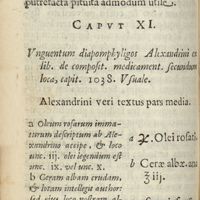 putrefacta pituita admodum utile.
CAPVT XI.
Vnguentum diapompholygos Alexandrini ex
lib. de composit. medicament. secundum
loca, capit. 1038. Vsuale.
Alexandrini veri textus pars media.
a Oleum rosarum imma-
turum descriptum ab Ale-
xandrino accipe, & loco
unc. iij. olei legendum est
unc. ix. vel unc. x.
b Ceram albam crudam,
& lotam intelligit author:
a ℞. Olei rosati
b Ceræ albæ, an
℥ iij.